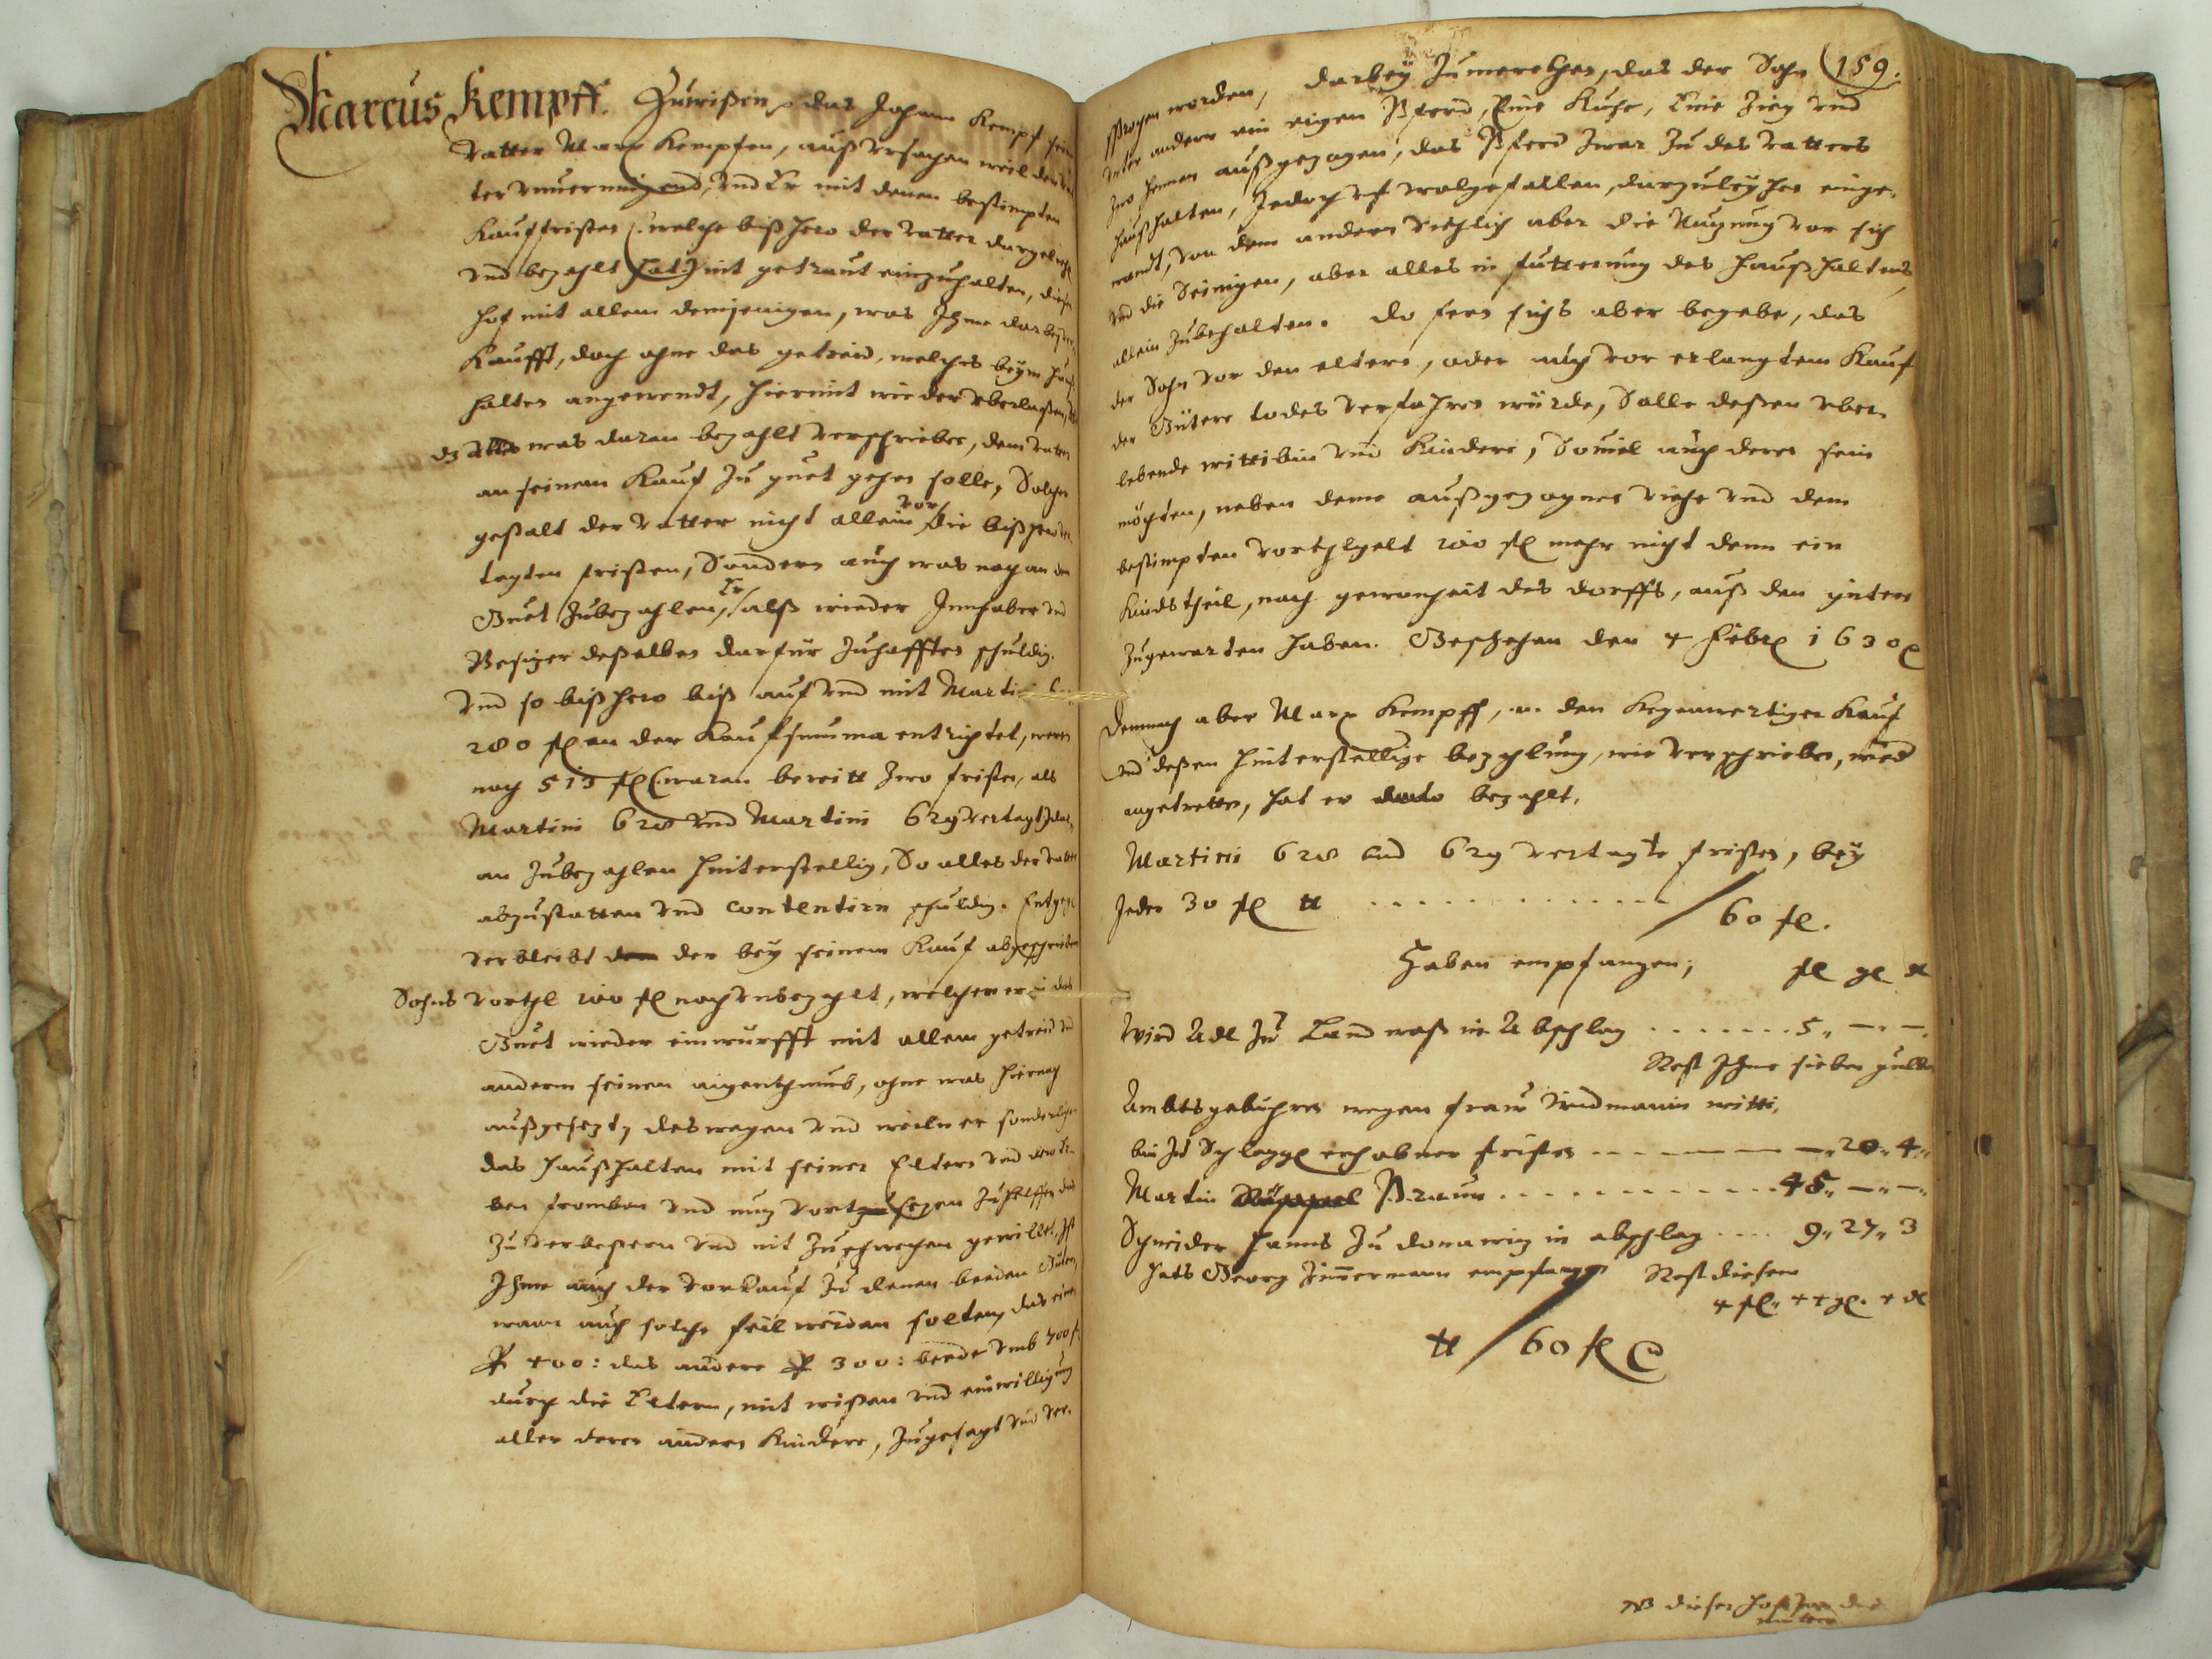 Marcus Kempff. Zuwißen, das Johann Kempf sein
Vatter Marx Kempfen, auß vrsachen weil der Vat
ter vnuermügend, vnd Er mit denen bestimpten
Kauffristen (: welche bißhero der Vatter dargeleht
vnd bezahlt hat :) nit getraut einzuhalten, diesen
hof mit allem demjenigen, was Ihme darbey ver,
Kaufft, doch ohne das getreid, welches beym hauß
halten angewendt, hiermit wieder vberlaßen,
dz alles was daran bezahlt verschrieben, dem Vatter
an seinem Kauf zu guet gehen solle, Solcher
gestalt der Vatter nicht allein vor die bißhero ver,
tagten fristen, Sondern auch was noch an dem
Guet zubezahlen, Er alß wieder Innhaber vnd
Besizer deßelben darfür zuhafften schuldig.
Vnd so bißhero biß auf vnd mit Martini
280 fl an der Kaufsumma entrichtet, weren
noch 513 fl (: waran bereitt zwo fristen, als
Martini 628 vnd Martini 629 vertagt :) dar,
an zubezahlen hinterstellig, So alles der Vatter
abzustatten vnd contentirn schuldig. Entgegen
verbleibt der bey seinem Kauf abgeschrieben
Sohns vortheil 100 fl noch vnbezahlt, welchen er in das
Guet wieder einwürfft mit allem getreid vnd
anderm seinem aigenthumb, ohne was hiernach
außgesezt, deswegen vnd weiln er sonderlichen
das haußhalten mit seiner Eltern vnd
ben frommen vnd nuz vortzusezen zuhelffen vnd
zu verbeßern vnd nit zuschwechen gewillet, Ist
Ihme auch der vorkauf zu denen beeden Güter,
wann auch solche feil werden solten, das eine
p 400: das andere p 300: beede vmb 700 fl
durch die Eltern, mit wißen vnd einwilligung
aller derer andern Kindere, zugesagt vnd ver,
159.
sprochen worden, darbey zumercken, das der Sohn
vnter andern ein eigen Pferd, Eine Kuhe, Eine Zieg vnd
zwo hennen außgezogen, das Pferd zwar zu des Vatters
haußhalten, Jedoch vf wolgefallen, darzuleyhen einge,
wendt, von dem andern Viehlich aber die Nuzung vor sich
vnd die Seinigen, aber alles in futterung des haußhaltens
allein zubehalten. Do fern sichs aber begebe, das
der Sohn vor den eltern, oder auch vor erlangtem Kauf
der Gütere todes verfahren würde, Solle deßen vber,
lebende wittibin vnd Kindere, Souiel auch derer sein
möchten, neben deme außgezognen viehe vnd dem
bestimpten vortheilgelt 100 fl mehr nicht denn ein
Kindstheil, nach gewonheit des dorffs, auß den gütern
zugewarten haben. Geschehen den 4 Febr 1630
Demnach aber Marx Kempff, den Kegenwertigen Kauf
vnd deßen hinterstellige bezahlung, wie verschrieben, wied
angetretten, hat er dato bezahlt,
Martini 628 vnd 629 vertagte fristen, bey
Jeder 30 fl tt . . . . . . . . . . . . . / 60 fl.
Haben empfangen, fl gl d
Wird Adl zu Landwust in Abschlag . . . . . . . 5,, —,, —,
Rest Ihme sieben gulden
Ambtsgebühren wegen fraw Vindmanin witti,
bin zu Schlagg erhabner fristen - - - - —,, 20,, 4,,
Martin Braun . . . . . . . . . . . . 45,, —,, —,,
Schneider Hanns zu donawiz in abschlag . . . . 9,, 27,, 3
hats Georg Zimmermann empfangen Rest diesem
4 fl,, 44 gl. 4 d
tt / 60 fl
NB dieser hof